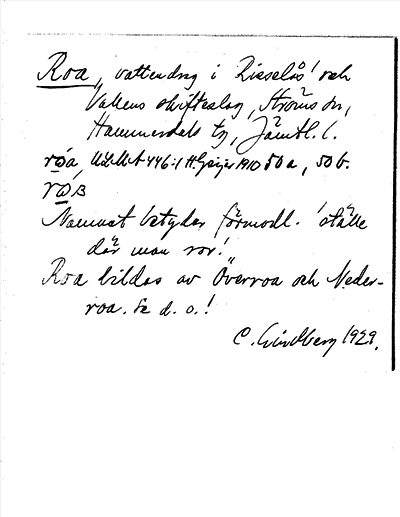 Roa, vattendrag i Risselås' och
Vallens skifteslag, Ströms sn,
Hammerdals tg, Jämtl. l.
rǫa, ULMA 446:1 H. Geijer 1910 50 a, 50 b.
Namnet betyder förmodl. 'ställe
där man ror'.
Roa bildas av Överroa och Neder-
roa. Se d. o.!
C. Lindberg 1929.